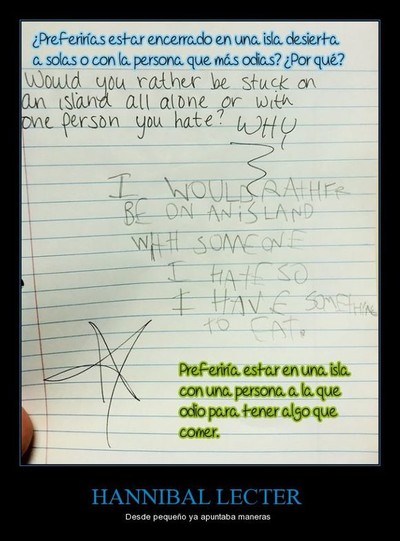 ¿Preferirías estar encerrado en una isla desierta
a solas o con la persona que más odias? ¿Por qué?
Would you rather be stuck on
an island all alone or with
one person you hate? WHY
I WOULD RATHER
BE ON AN iSLAND
WITH SOMEONE
I HATE SO
I HAVE SOMETHING
TO EAT.
Preferiría estar en una isla
con una persona a la que
odio para tener algo que
comer.
HANNIBAL LECTER
Desde pequeño ya apuntaba maneras